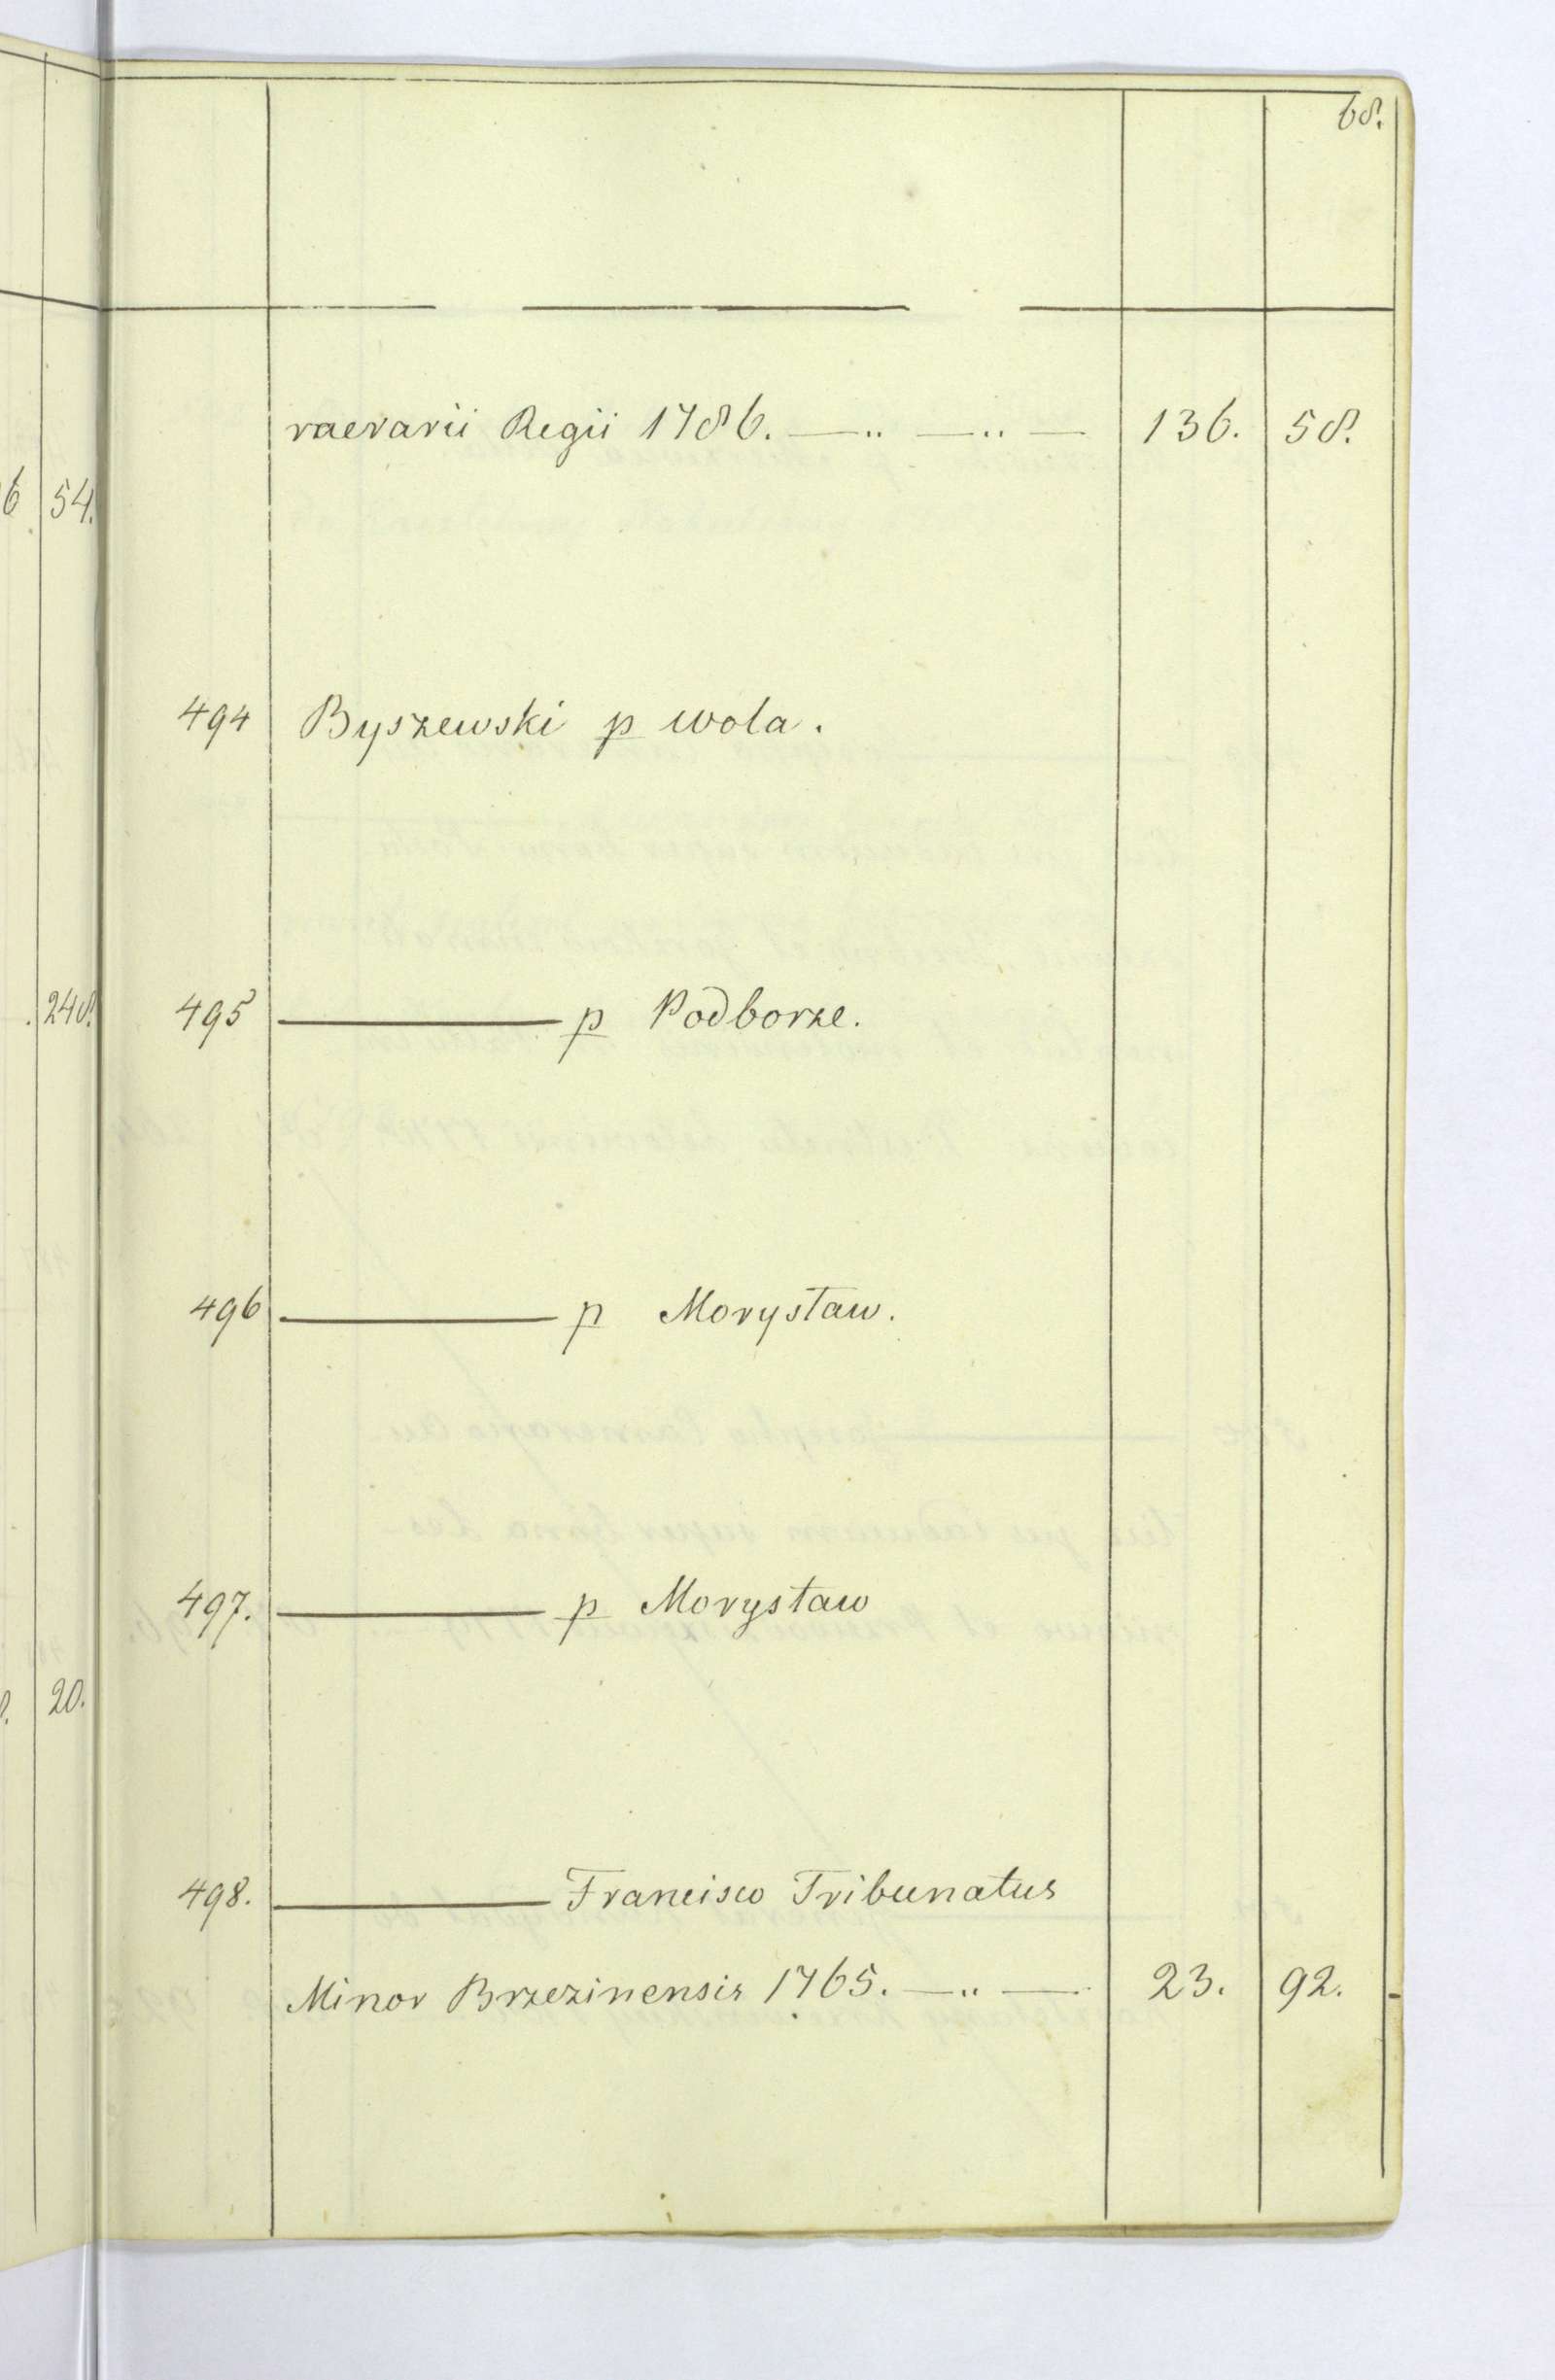 68.
raerarii Regii 1786. —„ —„ — 136. 58.
6 54.
494 Byszewski p wola.
240. 495 ——— p Podborze.
496 ——— p Morysław.
497. ——— p Morysław
20.
498. ——— Francisco Tribunatus
Minor Brzezinensis 1765. —„ — 23. 92.